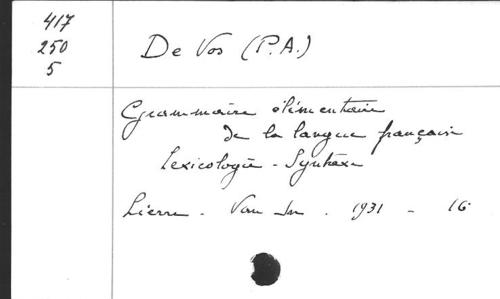 417
250
5
De Vos (P.A.)
Grammaire élémentaire
de la langue française
Lexicologie - Syntaxe
Lierre - Van In . 1931 - 16